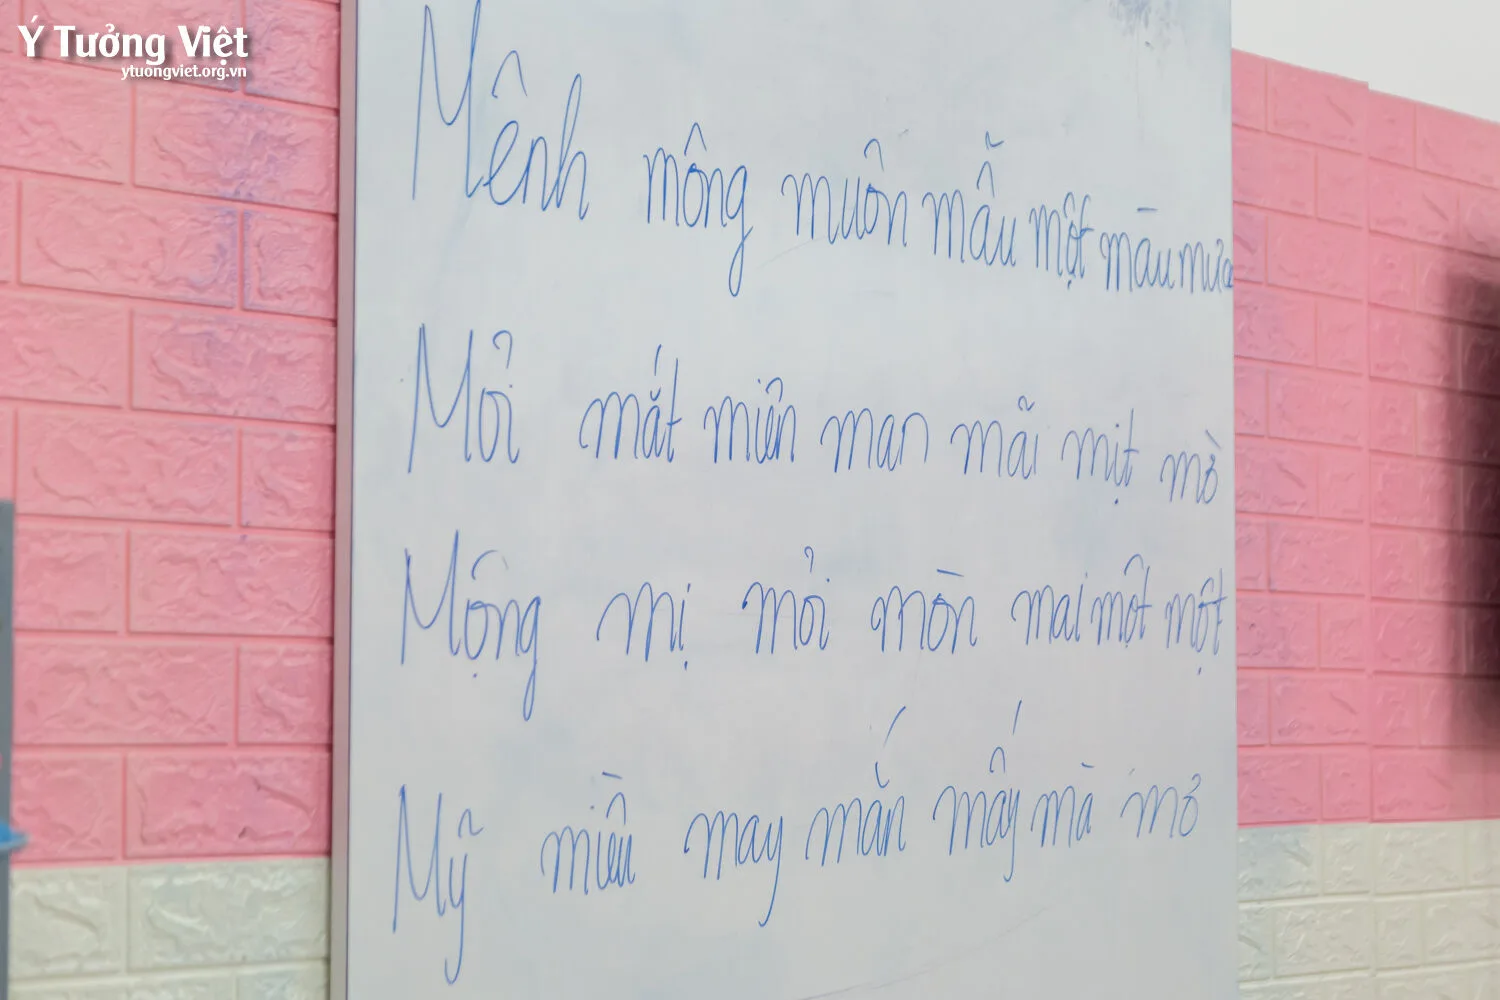 Ý Tưởng Việt
ytuongviet.org.vn
Mênh mông muôn mẫu một màu mưa
Mỏi mắt miên man mãi mịt mờ
Mộng mị mỏi mòn mai một một
Mỹ miều may mắn mấy mà mơ